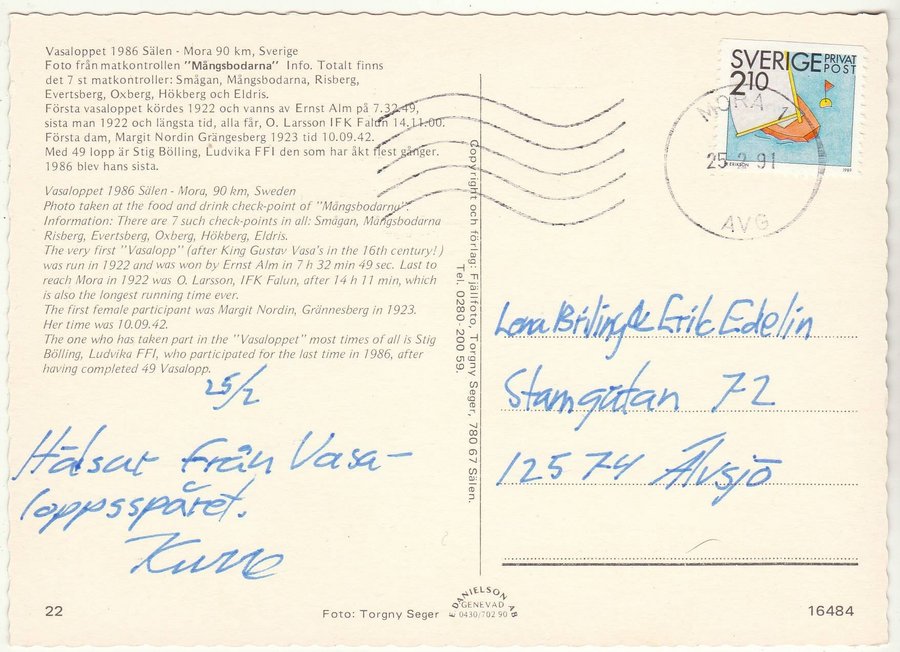 Vasaloppet 1986 Sälen - Mora 90 km, Sverige
Foto från matkontrollen "Mångsbodarna" Info. Totalt finns
det 7 st matkontroller: Smågan, Mångsbodarna, Risberg,
Evertsberg, Oxberg, Hökberg och Eldris.
Första vasaloppet kördes 1922 och vanns av Ernst Alm på 7.32.49,
sista man 1922 och längsta tid, alla får, O. Larsson IFK Falun 14.11.00.
Första dam, Margit Nordin Grängesberg 1923 tid 10.09.42.
Med 49 lopp är Stig Bölling, Ludvika FFI den som har åkt flest gånger.
1986 blev hans sista.
Vasaloppet 1986 Sälen - Mora, 90 km, Sweden
Photo taken at the food and drink check-point of "Mångsbodarna".
Information: There are 7 such check-points in all: Smågan, Mångsbodarna
Risberg, Evertsberg, Oxberg, Hökberg, Eldris.
The very first "Vasalopp" (after King Gustav Vasa's in the 16th century!)
was run in 1922 and was won by Ernst Alm in 7 h 32 min 49 sec. Last to
reach Mora in 1922 was O. Larsson, IFK Falun, after 14 h 11 min, which
is also the longest running time ever.
The first female participant was Margit Nordin, Grännesberg in 1923.
Her time was 10.09.42.
The one who has taken part in the "Vasaloppet" most times of all is Stig
Bölling, Ludvika FFI, who participated for the last time in 1986, after
having completed 49 Vasalopp.
25/2
Hälsar från Vasa-
loppsspåret.
Kurre
22
Foto: Torgny Seger
Copyright och förlag: Fjällfoto, Torgny Seger, 780 67 Sälen.
Tel. 0280-200 59.
DANIELSON
GENEVAD
0430/702 90
AB
SVERIGE PRIVAT
POST
2.10
1989
MORA 1
25 2 91
AVG
Lena Briling & Eric Edelin
Stamgatan 72
125 74 Älvsjö
16484